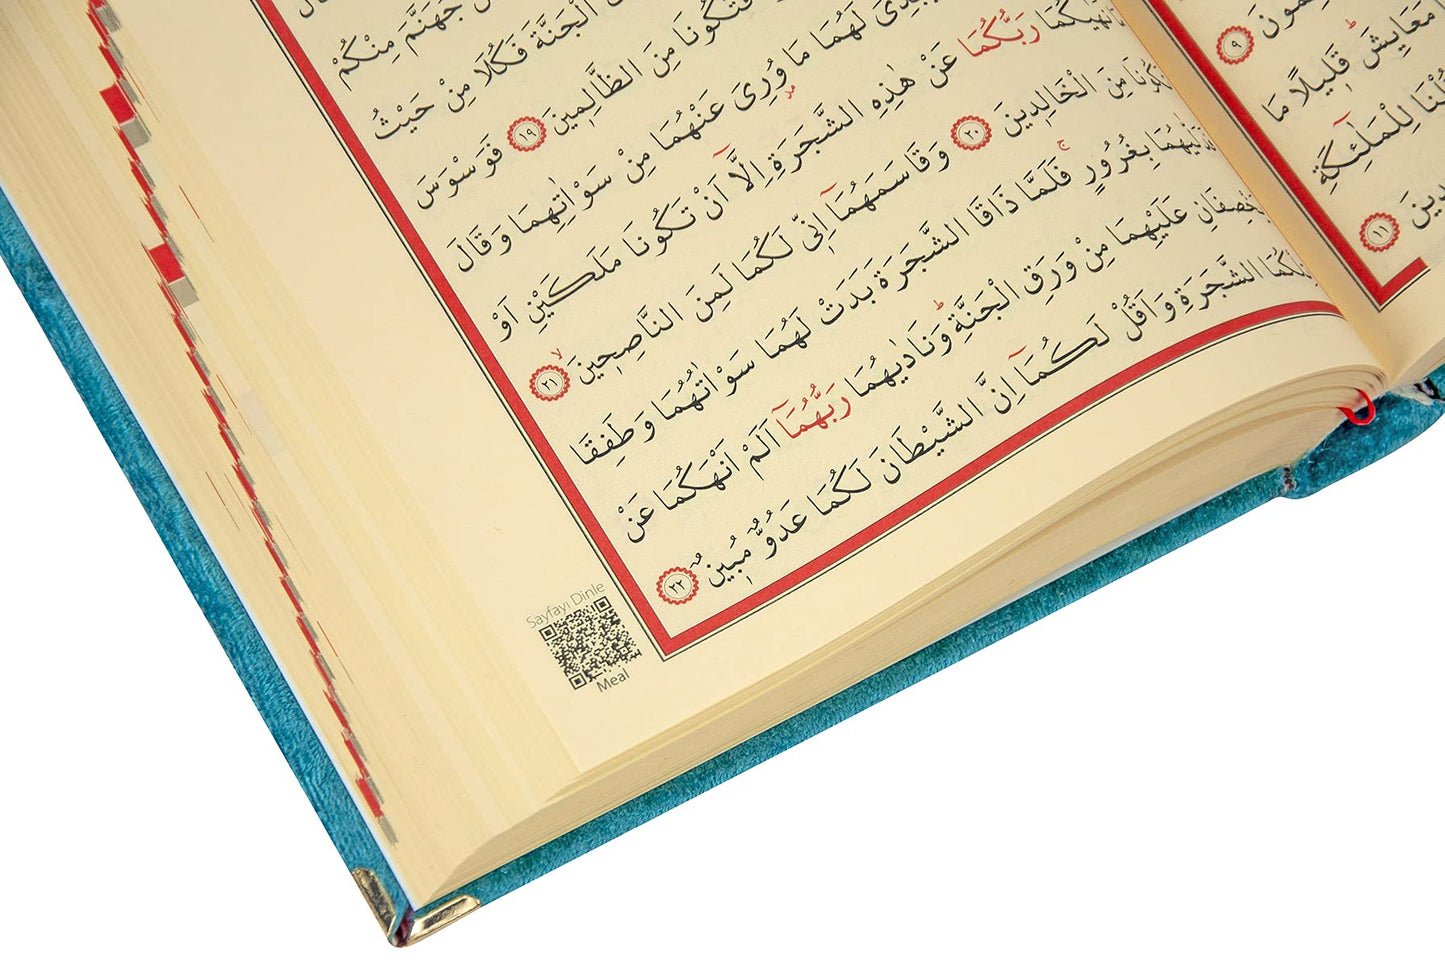 ٩
مَعَايِشَ قَلِيلًا مَا
لِلْمَلٰٓئِكَةِ
١١
قَالَ
جَهَنَّمَ مِنْكُمْ
الْجَنَّةَ فَكُلَا مِنْ حَيْثُ
فَتَكُونَا مِنَ الظَّالِمِينَ ١٩ فَوَسْوَسَ
لَهُمَا مَا وُرِىَ عَنْهُمَا مِنْ سَوْاٰتِهِمَا وَقَالَ
رَبُّكُمَا عَنْ هٰذِهِ الشَّجَرَةِ اِلَّٓا اَنْ تَكُونَا مَلَكَيْنِ اَوْ
مِنَ الْخَالِدِينَ ٢٠ وَقَاسَمَهُمَٓا اِنّٖى لَكُمَا لَمِنَ النَّاصِحِينَ ٢١
بِغُرُورٍ فَلَمَّا ذَاقَا الشَّجَرَةَ بَدَتْ لَهُمَا سَوْاٰتُهُمَا وَطَفِقَا
عَلَيْهِمَا مِنْ وَرَقِ الْجَنَّةِ وَنَادٰيهُمَا رَبُّهُمَٓا اَلَمْ اَنْهَكُمَا عَنْ
الشَّجَرَةِ وَاَقُلْ لَكُمَٓا اِنَّ الشَّيْطَانَ لَكُمَا عَدُوٌّ مُبِينٌ ٢٢
Sayfayı Dinle
Meal